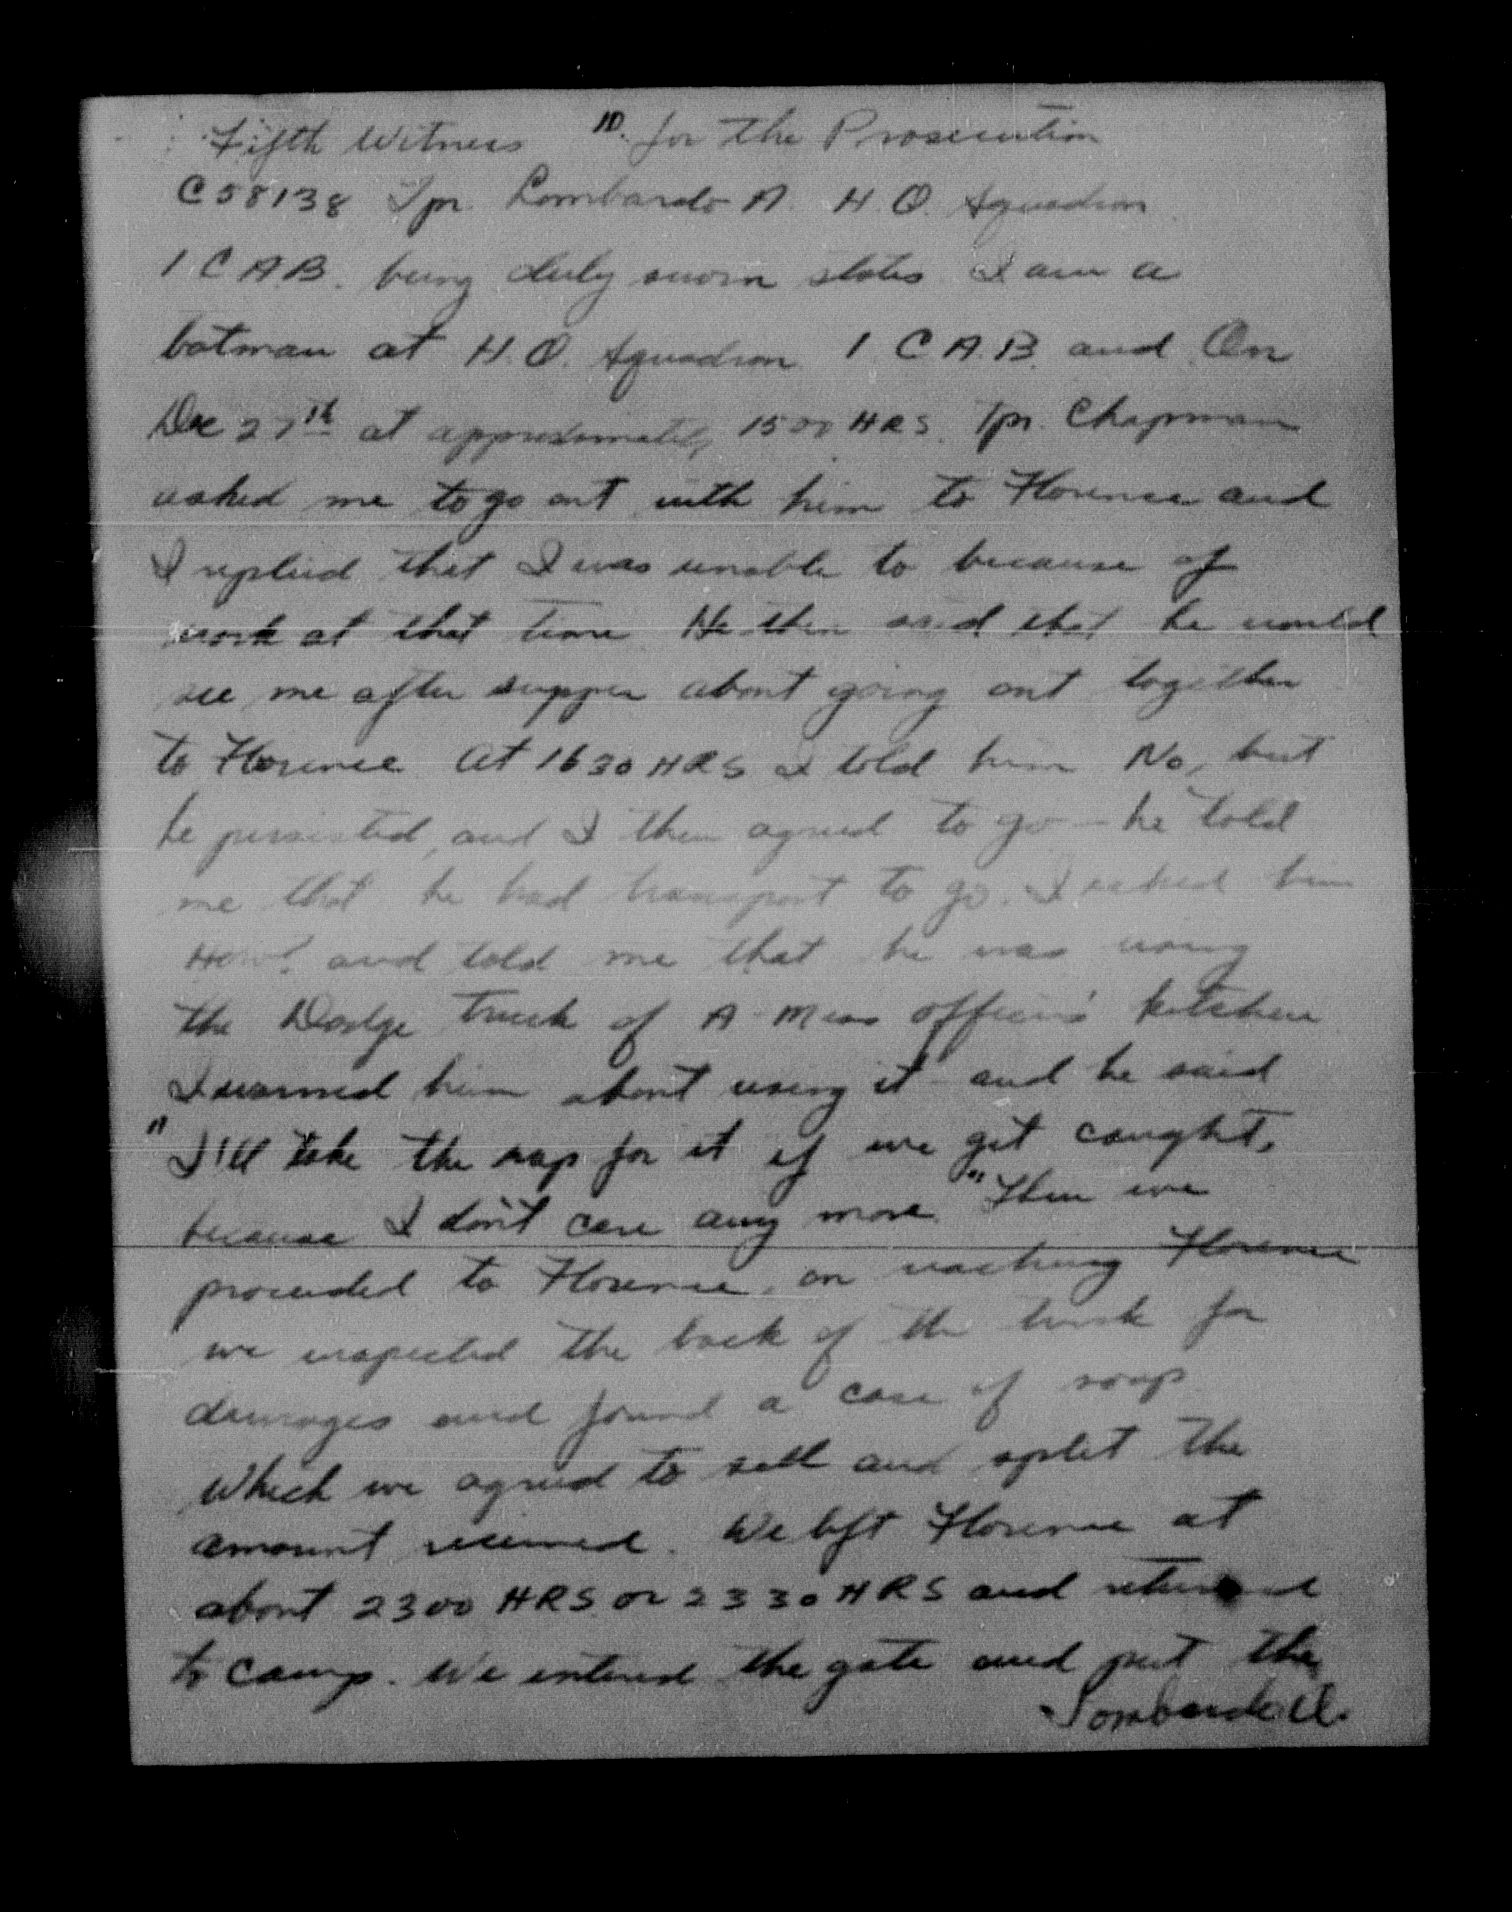 Fifth Witness 10. for the Prosecution
C58138 Tpr. Lombardo A. H.Q. Squadron
1 C A.B. being duly sworn states I am a
batman at H.Q. Squadron 1 C A.B. and On
Dec 27th at approximately 1500 HRS. Tpr. Chapman
asked me to go out with him to Florence and
I replied that I was unable to because of
work at that time He then said that he would
see me after supper about going out together
to Florence At 1630 HRS I told him No, but
he persisted, and I then agreed to go - he told
me that he had transport to go. I asked him
How? and told me that he was using
the Dodge Truck of A Mess officers' kitchen
I warned him about using it and he said
"I'll take the rap for it if we get caught,
because I don't care any more." Then we
proceeded to Florence, on reaching Florence
we inspected the back of the truck for
damages and found a case of soap
which we agreed to sell and split the
amount received. We left Florence at
about 2300 HRS. or 2330 HRS and returned
to camp. We entered the gate and put the
Lombardo A.